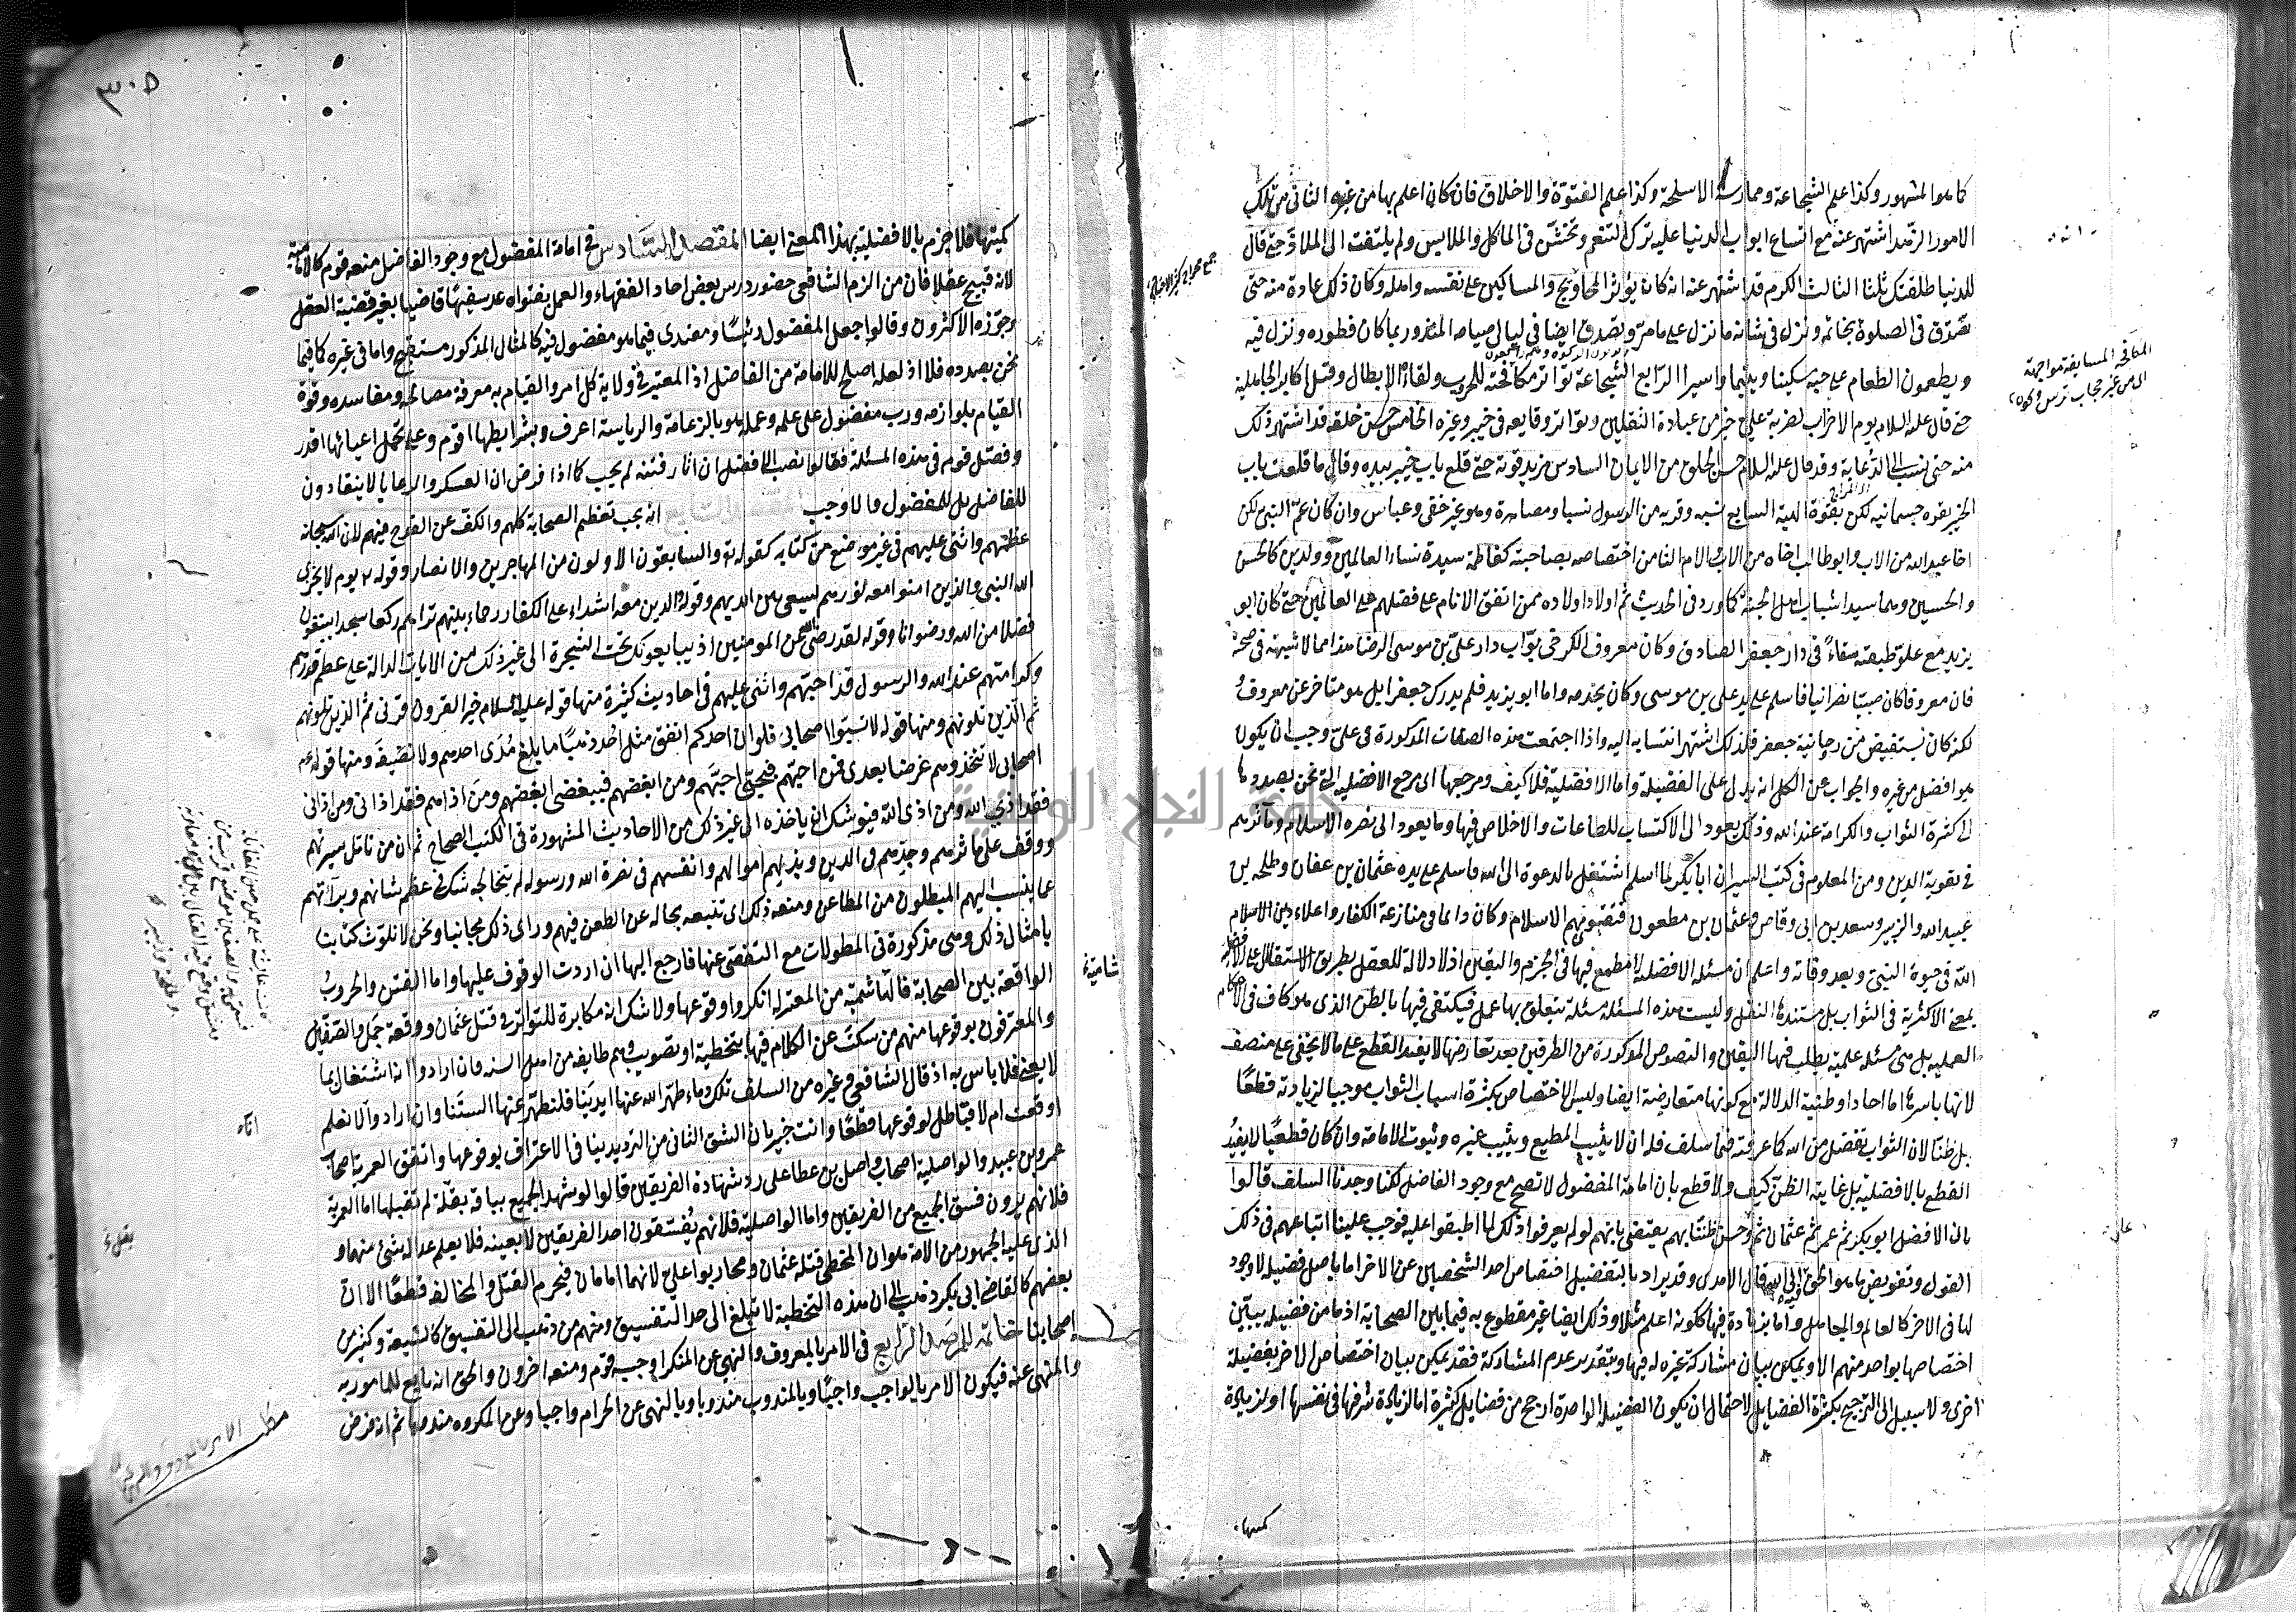 كما هو المشهور وكذا علم الشجاعة وممارسة الاسلحة وكذا علم الفتوة والاخلاق فان كان اعلم بها من غيره الثانى من تلك
الامور الزهد اشتهر عنه مع اتساع ابواب الدنيا عليه ترك التنعم وتخشّن فى المآكل والملابس ولم يلتفت الى الملاذّ حتى قال
للدنيا طلقتك ثلثا الثالث الكرم قد اشتهر عنه انه كان يؤثر المحاويج والمساكين على نفسه واهله وكان ذلك عادة منه حتى
تصدّق فى الصلوة بخاتمه ونزل فى شانه ما نزل على ما مر وتصدق ايضا فى ليالى صيامه المنذور بما كان فطوره ونزل فيه
ويطعمون الطعام على حبه مسكينا ويتيما واسيرا الرابع الشجاعة تواتر مكافحته للحروب ولقاء الابطال وقتل اكابر الجاهلية
حتى قال عليه السلام يوم الاحزاب لضربة على خير من عبادة الثقلين وتواتر وقايعه فى خيبر وغيره الخامس حسن خلقه قد اشتهر ذلك
منه حتى نسب الى الدّعابة وقد قال عليه السلام حسن الخلق من الايمان السادس مزيد قوته حتى قلع باب خيبر بيده وقال ما قلعت باب
الخيبر بقوة جسمانيه لكن بقوة الهية السابع نسبه وقربه من الرسول نسبا ومصاهرة وهو غير خفى وعباس وان كان عمّ النبى لكن
اخا عبد الله من الاب وابو طالب اخاه من الاب والام الثامن اختصاصه بصاحبته كفاطمة سيدة نساء العالمين وولدين كالحسن
والحسين وهما سيدا شباب اهل الجنة كما ورد فى الحديث ثم اولاد اولاده ممن اتفق الانام على فضلهم على العالمين حتى كان ابو
يزيد مع علوّ طبقته سقاءً فى دار جعفر الصادق وكان معروف الكرخى بوّاب دار على بن موسى الرضا هذا مما لا شبهة فى صحته
فان معروفا كان صبيا نصرانيا فاسلم على يد على بن موسى وكان يخدمه واما ابو يزيد فلم يدرك جعفرا بل هو متاخر عن معروف
لكنه كان يستفيض من روحانية جعفر فلذلك اشتهر انتسابه اليه واذا اجتمعت هذه الصفات المذكورة فى على وجب ان يكون
هو افضل من غيره والجواب عن الكل انه يدل على الفضيلة واما الافضلية فلا كيف ومرجعها الى مرجع الافضلية التى نحن بصددها
الى كثرة الثواب والكرامة عند الله وذلك يعود الى الاكتساب للطاعات والاخلاص فيها وما يعود الى نصره الاسلام ومآثرهم
فى تقوية الدين ومن المعلوم فى كتب السير ان ابا بكر لما اسلم اشتغل بالدعوة الى الله فاسلم على يده عثمان بن عفان وطلحه بن
عبيد الله والزبير وسعد بن ابى وقاص وعثمان بن مظعون فتقوى بهم الاسلام وكان دائما فى منازعة الكفار واعلاء دين الاسلام
الله فى حيوة النبى وبعد وفاته واعلم ان مسئلة الافضلية لا مطمع فيها فى الجزم واليقين اذ لا دلالة للعقل بطريق الاستقلال على الافضلية
بمعنى الاكثرية فى الثواب بل مستندها النقل وليست هذه المسئلة مسئلة يتعلق بها عمل فيكتفى فيها بالظن الذى هو كاف فى الاحكام
العمليه بل هى مسئلة علمية يطلب فيها اليقين والنصوص المذكورة من الطرفين بعد تعارضها لا يفيد القطع على ما لا يخفى على منصف
لانها باسرها اما احاد او ظنية الدلالة مع كونها متعارضة ايضا وليس الاختصاص بكثرة اسباب الثواب موجبا لزيادته قطعًا
بل ظنّا لان الثواب تفضل من الله كما عرفته فيما سلف فله ان لا يثيب المطيع ويثيب غيره وثبوت الامامة وان كان قطعيًا لا يفيدُ
القطع بالافضلية بل غايته الظن كيف ولا قطع بان امامة المفضول لا تصح مع وجود الفاضل لكنا وجدنا السلف قالوا
بان الافضل ابو بكر ثم عمر ثم عثمان ثم وحسن ظنّنا بهم يقتضى بانهم لو لم يعرفوا ذلك لما اطبقوا عليه فوجب علينا اتباعهم فى ذلك
القول وتفويض ما هو الحق فيه الى الله قال الامدى وقد يراد بالتفضيل اختصاص احد الشخصين عن الاخر اما باصل فضيلة لا وجود
لها فى الاخر كالعالم والجاهل واما بزيادة فيها ككونه اعلم مثلا وذلك ايضا غير مقطوع به فيما بين الصحابة اذ ما من فضيلة يبين
اختصاصها بواحد منهم الا ويمكن بيان مشاركة غيره له فيها وبتقدير عدم المشاركة فقد يمكن بيان اختصاص الاخر بفضيلة
اخرى ولا سبيل الى الترجيح بكثرة الفضايل لاحتمال ان يكون الفضيلة الواحدة ارجح من فضايل كثيرة اما لزيادة شرفها فى نفسها او لزيادة
كميتها
المكافحة المسايفة مواجهة
٣٠٥
كميتها فلا جزم بالافضلية بهذا المعنى ايضا المقصد السّادس فى امامة المفضول مع وجود الفاضل منعه قوم كالامامية
لانه قبيح عقلا فان من الزم الشافعى حضور درس بعض احاد الفقهاء والعمل بفتواه عد سفيها قاضيا بغير قضية العقل
وجوّزه الاكثرون وقالوا جعل المفضول رئيسًا ومقتدى فيما هو مفضول فيه كالمثال المذكور مستقبح واما فى غيره كما فيما
نحن بصدده فلا اذ لعله اصلح للامامة من الفاضل اذ المعتبر فى ولاية كل امر والقيام به معرفة مصالحه ومفاسده وقوة
القيام بلوازمه ورب مفضول على علمه وعمله هو بالزعامة والرياسة اعرف وبشرايطها اقوم وعلى تحمل اعبائها اقدر
وفصّل قوم فى هذه المسئلة فقالوا نصب الافضل ان اثار فتنه لم يجب كما اذا فرض ان العسكر والرعايا لا ينقادون
للفاضل بل للمفضول والا وجب المقصد السابع انه يجب تعظيم الصحابة كلهم والكف عن القدح فيهم لان الله سبحانه
عظمهم واثنى عليهم فى غير موضع من كتابه كقوله والسابقون الاولون من المهاجرين والانصار وقوله يوم لا يخزى
الله النبى والذين امنوا معه نورهم يسعى بين ايديهم وقوله والذين معه اشداء على الكفار رحماء بينهم تراهم ركعا سجدا يبتغون
فضلا من الله ورضوانا وقوله لقد رضى الله عن المومنين اذ يبايعونك تحت الشجرة الى غير ذلك من الايات الدالة على عظم قدرهم
وكرامتهم عند الله والرسول قد احبّهم واثنى عليهم فى احاديث كثيرة منها قوله عليه السلام خير القرون قرنى ثم الذين يلونهم
ثم الذين يلونهم ومنها قوله لا تسبّوا اصحابى فلو ان احدكم انفق مثل اُحد ذهبًا ما بلغ مُدّى احدهم ولا نصيفَه ومنها قوله
اصحابى لا تتخذوهم غرضا بعدى فمن احبّهم فبحبّى احبّهم ومن ابغضهم فببغضى ابغضهم ومن اذاهم فقد اذانى ومن اذانى
فقد اذى الله ومن اذى الله فيوشك ان ياخذه الى غير ذلك من الاحاديث المشهورة فى الكتب الصحاح ثم ان من تامّل سيرتهم
ووقف على مآثرهم وجدّهم فى الدين وبذلهم اموالهم وانفسهم فى نصرة الله ورسوله لم يتخالجه شك فى عظم شانهم وبرآءتهم
عما ينسب اليهم المبطلون من المطاعن ومنعه ذلك اى تتبعه بحاله عن الطعن فيهم وراى ذلك مجانبا ونحن لا نلوّث كتابنا
بامثال ذلك وهى مذكورة فى المطولات مع التفصّى عنها فارجع اليها ان اردت الوقوف عليها واما الفتن والحروبُ
الواقعة بين الصحابة فالهاشمية من المعتزلة انكروا وقوعها ولا شك انه مكابرة للتواتر فى قتل عثمان ووقعة جمل والصفّين
والمعترفون بوقوعها منهم من سكتَ عن الكلام فيها بتخطية او تصويب وهم طايفة من اهل السنة فان ارادوا انه اشتغال بما
لا يعنى فلا باس به اذ قال الشافعى وغيره من السلف تلك دماء طهّر الله عنها ايدينا فلنطهّر عنها السنتنا وان ارادوا انا لا نعلم
اوقعت ام لا فباطل لوقوعها قطعًا وانت خبير بان الشق الثانى من الترديد ينافى الاعتراف بوقوعها واتفق العمرية اصحاب
عمرو بن عبيد والواصلية اصحاب واصل بن عطا على رد شهادة الفريقين قالوا لو شهد الجميع بباقة بقلة لم نقبلها اما العمرية
فلانهم يرون فسق الجميع من الفريقين واما الواصلية فلانهم يُفسّقون احد الفريقين لا بعينه فلا يعلم عدالة شئ منهما و
الذى عليه الجمهور من الامة هو ان المخطئ قتلة عثمان ومحاربوا على لانهما امامان فيحرم القتل والمخالفة قطعًا الا ان
بعضهم كالقاضى ابى بكر ذهب الى ان هذه التخطية لا تبلغ الى حد التفسيق ومنهم من ذهب الى التفسيق كالشيعة وكثير من
اصحابنا خاتمة للمرصد الرابع فى الامر بالمعروف والنهى عن المنكر اوجبه قوم ومنعه اخرون والحق انه تابع للمامور به
والمنهى عنه فيكون الامر بالواجب واجبًا وبالمندوب مندوبا وبالنهى عن الحرام واجبا وعن المكروه مندوبا ثم انه فرض